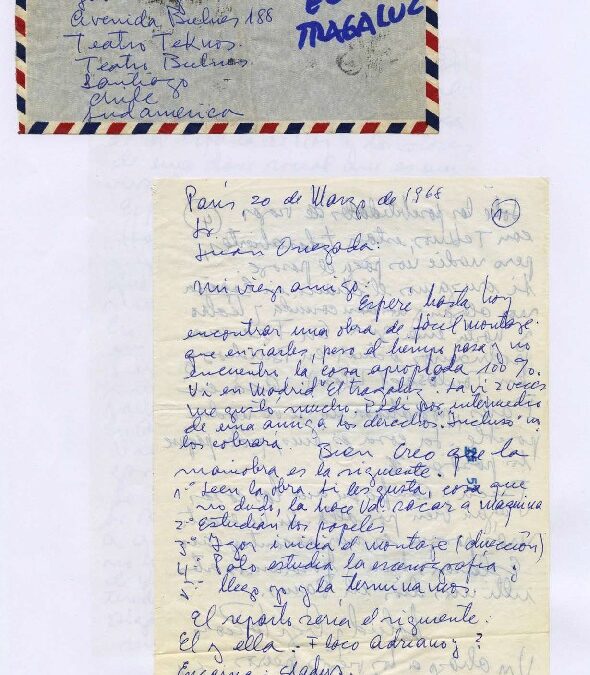 Avenida Bulnes 188
Teatro Teknos.
Teatro Bulnes
Santiago
Chile
Sudamerica
EL
TRAGALUZ
París 20 de Marzo de 1968
1
Sr
Juan Quezada.
mi viejo amigo. Espere hasta hoy
encontrar una obra de fácil montaje.
que enviarles, pero el tiempo pasa y no
encuentro la cosa apropiada 100%.
Vi en Madrid "El tragaluz". La vi 2 veces
me gustó mucho. Pedí por intermedio
de una amiga los derechos. Incluso
los cobrara. Bien Creo que la
maniobra es la siguiente.
1.º Leen la obra. Si les gusta, cosa que
no dudo, la hace Ud. sacar a máquina
2.º Estudian los papeles
3.º Igor inicia el montaje (dirección)
4.º Palo estudia la escenografía y
5.º llego yo y la terminamos.
El reparto sería el siguiente.
El y ella. Floco Adriano y ?
Encarna: